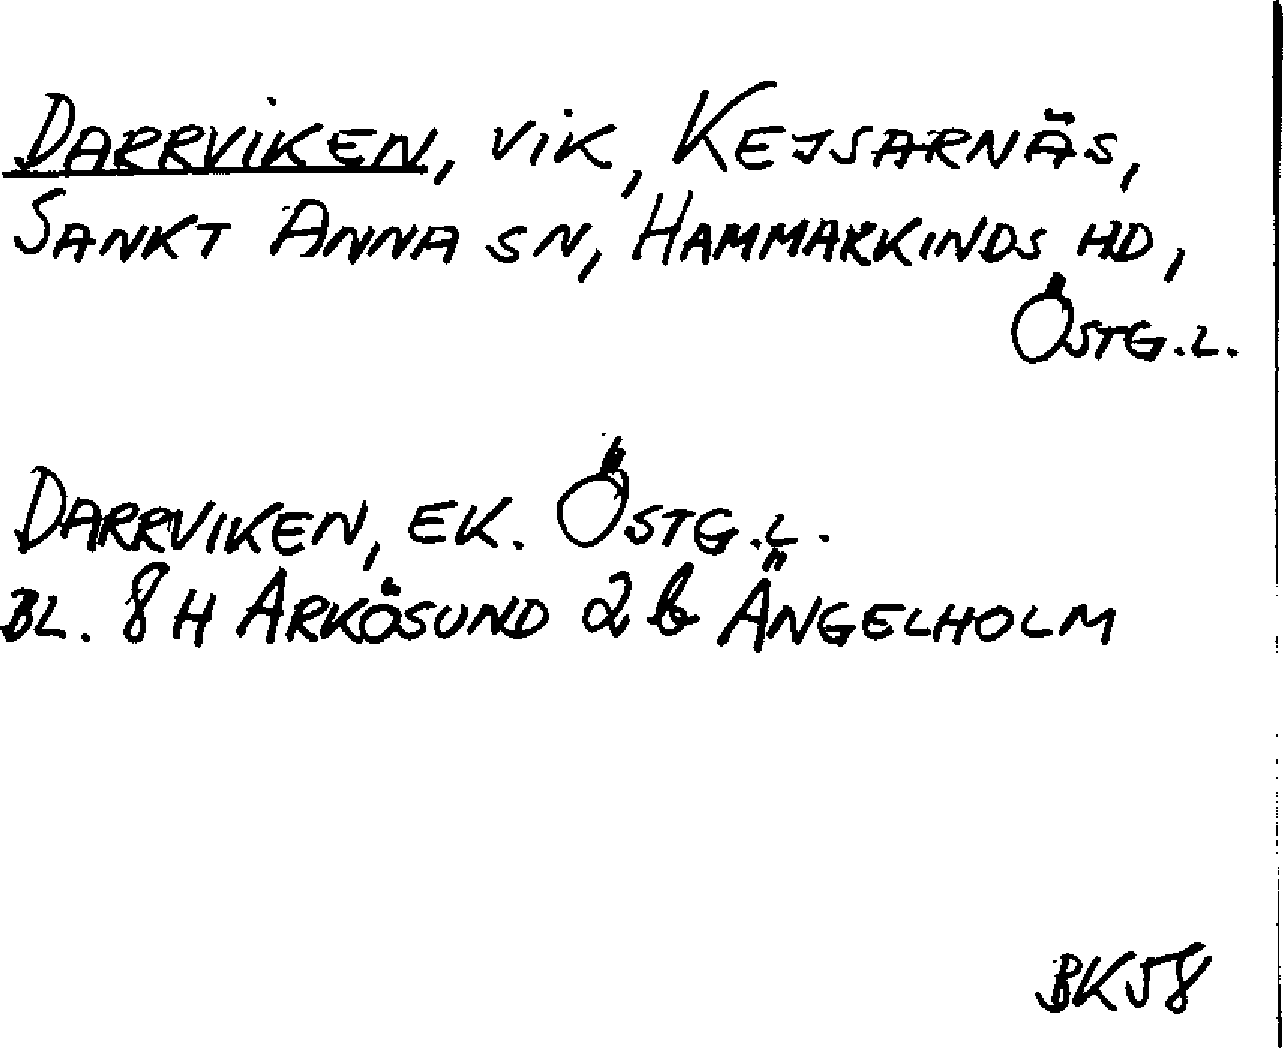 DARRVIKEN, VIK, KEJSARNÄS,
SANKT ANNA SN, HAMMARKINDS HD,
ÖSTG.L.
DARRVIKEN, EK. ÖSTG.L.
BL. 8H ARKÖSUND 2b ÄNGELHOLM
BK58